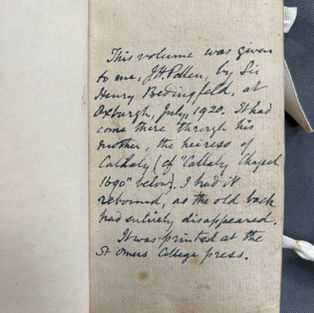 This volume was given
to me, J.H. Pollen, by Sir
Henry Bedingfeld, at
Oxburgh, July, 1920. It had
come there through his
mother, the heiress of
Callaly (cf "Callaly Chapel
1690" below). I had it
rebound, as the old back
had entirely disappeared.
It was printed at the
St Omers College press.